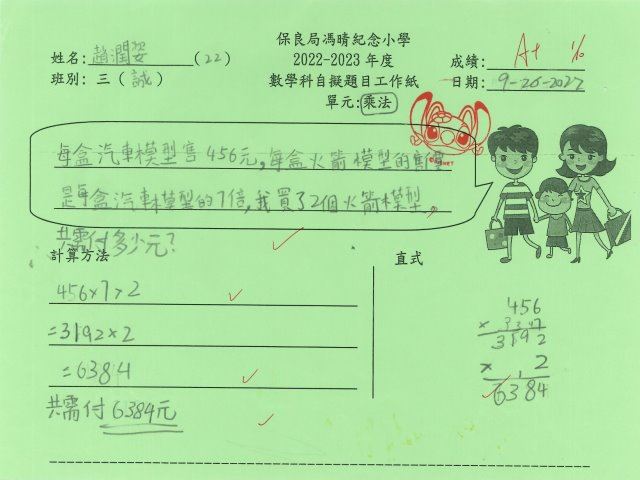 保良局馮晴紀念小學
姓名: 趙潤姿 (22) 2022-2023年度 成績: A+ %
班別: 三 (誠) 數學科自擬題目工作紙 日期: 9-26-2022
單元: 乘法
每盒汽車模型售456元,每盒火箭模型的售價
是每盒汽車模型的7倍,我買了2個火箭模型,
共需付多少元?
計算方法 直式
456×7×2
=3192×2
=6384
共需付6384元
456
× 7
3192
× 2
6384